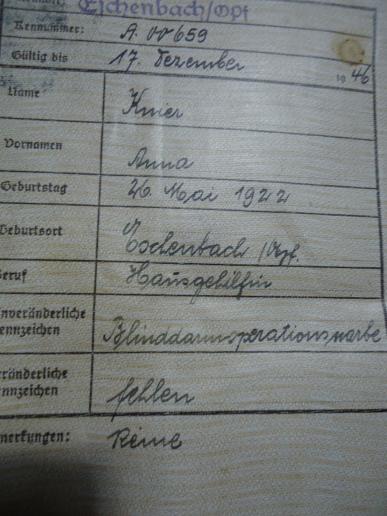 Eschenbach/Opf
Kennummer: A 00659
Gültig bis 17. Dezember 1946
Name Knier
Vornamen Anna
Geburtstag 26. Mai 1922
Geburtsort Eschenbach /Opf.
Beruf Hausgehilfin
Unveränderliche
Kennzeichen Blinddarmoperationsnarbe
Veränderliche
Kennzeichen fehlen
Bemerkungen: Keine